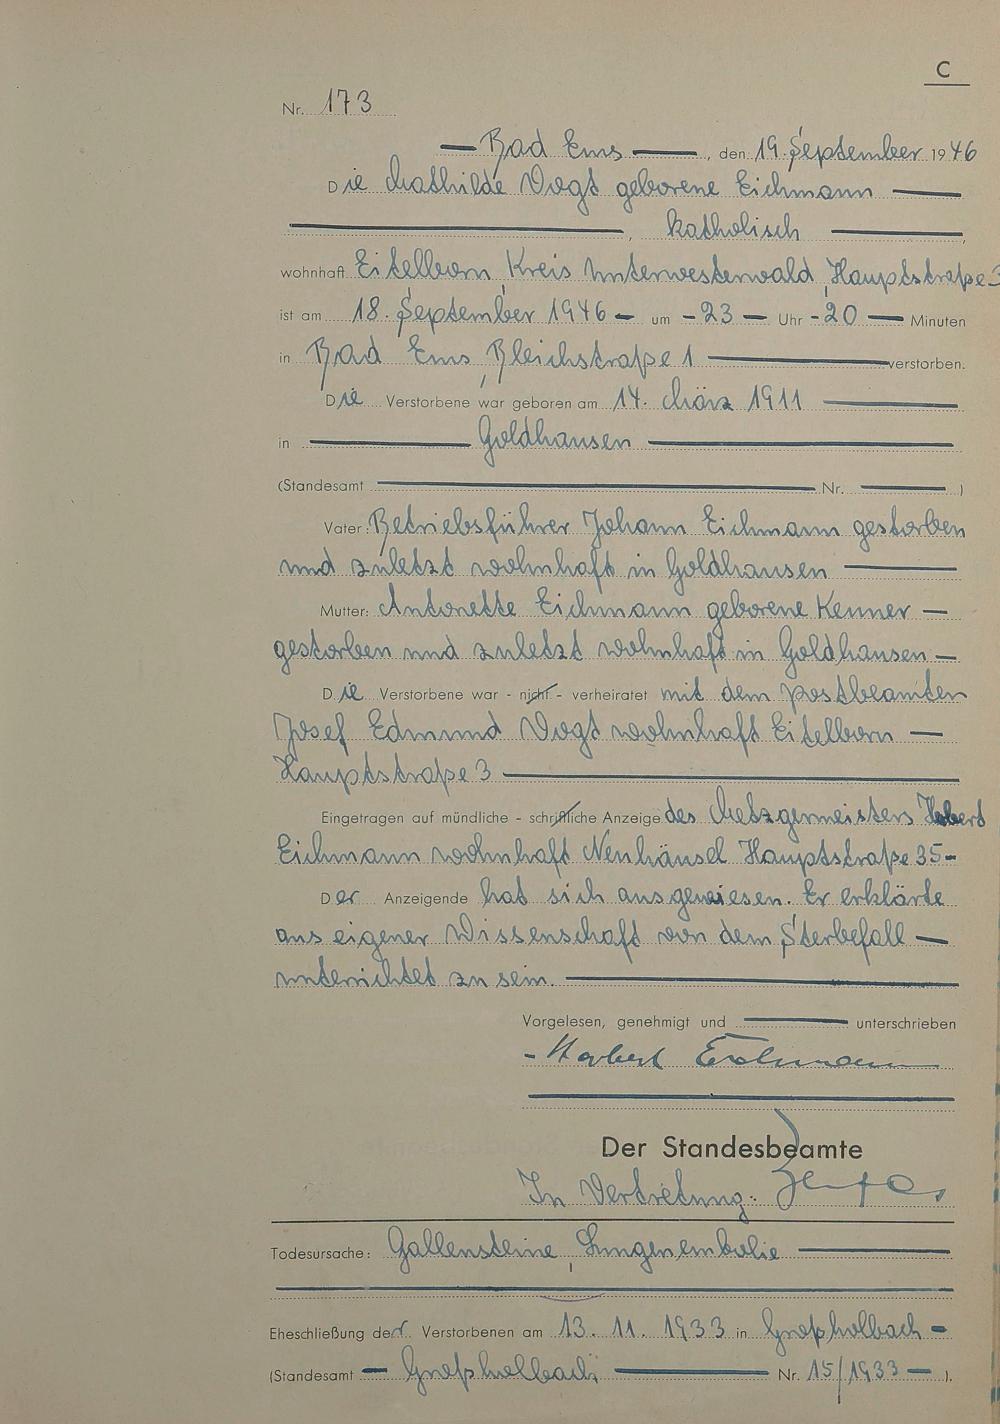 C
Nr. 173
Bad Ems, den 19. September 1946
Die Mathilde Vogt geborene Eichmann
, katholisch,
wohnhaft Eitelborn, Kreis Unterwesterwald, Hauptstraße 3
ist am 18. September 1946 um 23 Uhr 20 Minuten
in Bad Ems, Bleichstraße 1 verstorben.
Die Verstorbene war geboren am 14. März 1911
in Goldhausen
(Standesamt Nr. )
Vater: Betriebsführer Johann Eichmann gestorben
und zuletzt wohnhaft in Goldhausen
Mutter: Antonette Eichmann geborene Kenner
gestorben und zuletzt wohnhaft in Goldhausen
Die Verstorbene war - nicht - verheiratet mit dem Postbeamten
Josef Edmund Vogt wohnhaft Eitelborn
Hauptstraße 3
Eingetragen auf mündliche - schriftliche Anzeige des Metzgermeisters
Eichmann wohnhaft Neuhäusel Hauptstraße 35
Der Anzeigende hat sich ausgewiesen. Er erklärte
aus eigener Wissenschaft von dem Sterbefall
unterrichtet zu sein.
Vorgelesen, genehmigt und unterschrieben
Eichmann
Der Standesbeamte
In Vertretung:
Todesursache: Gallensteine, Lungenembolie
Eheschließung der Verstorbenen am 13. 11. 1933 in Großholbach
(Standesamt Großholbach Nr. 15/1933 ).